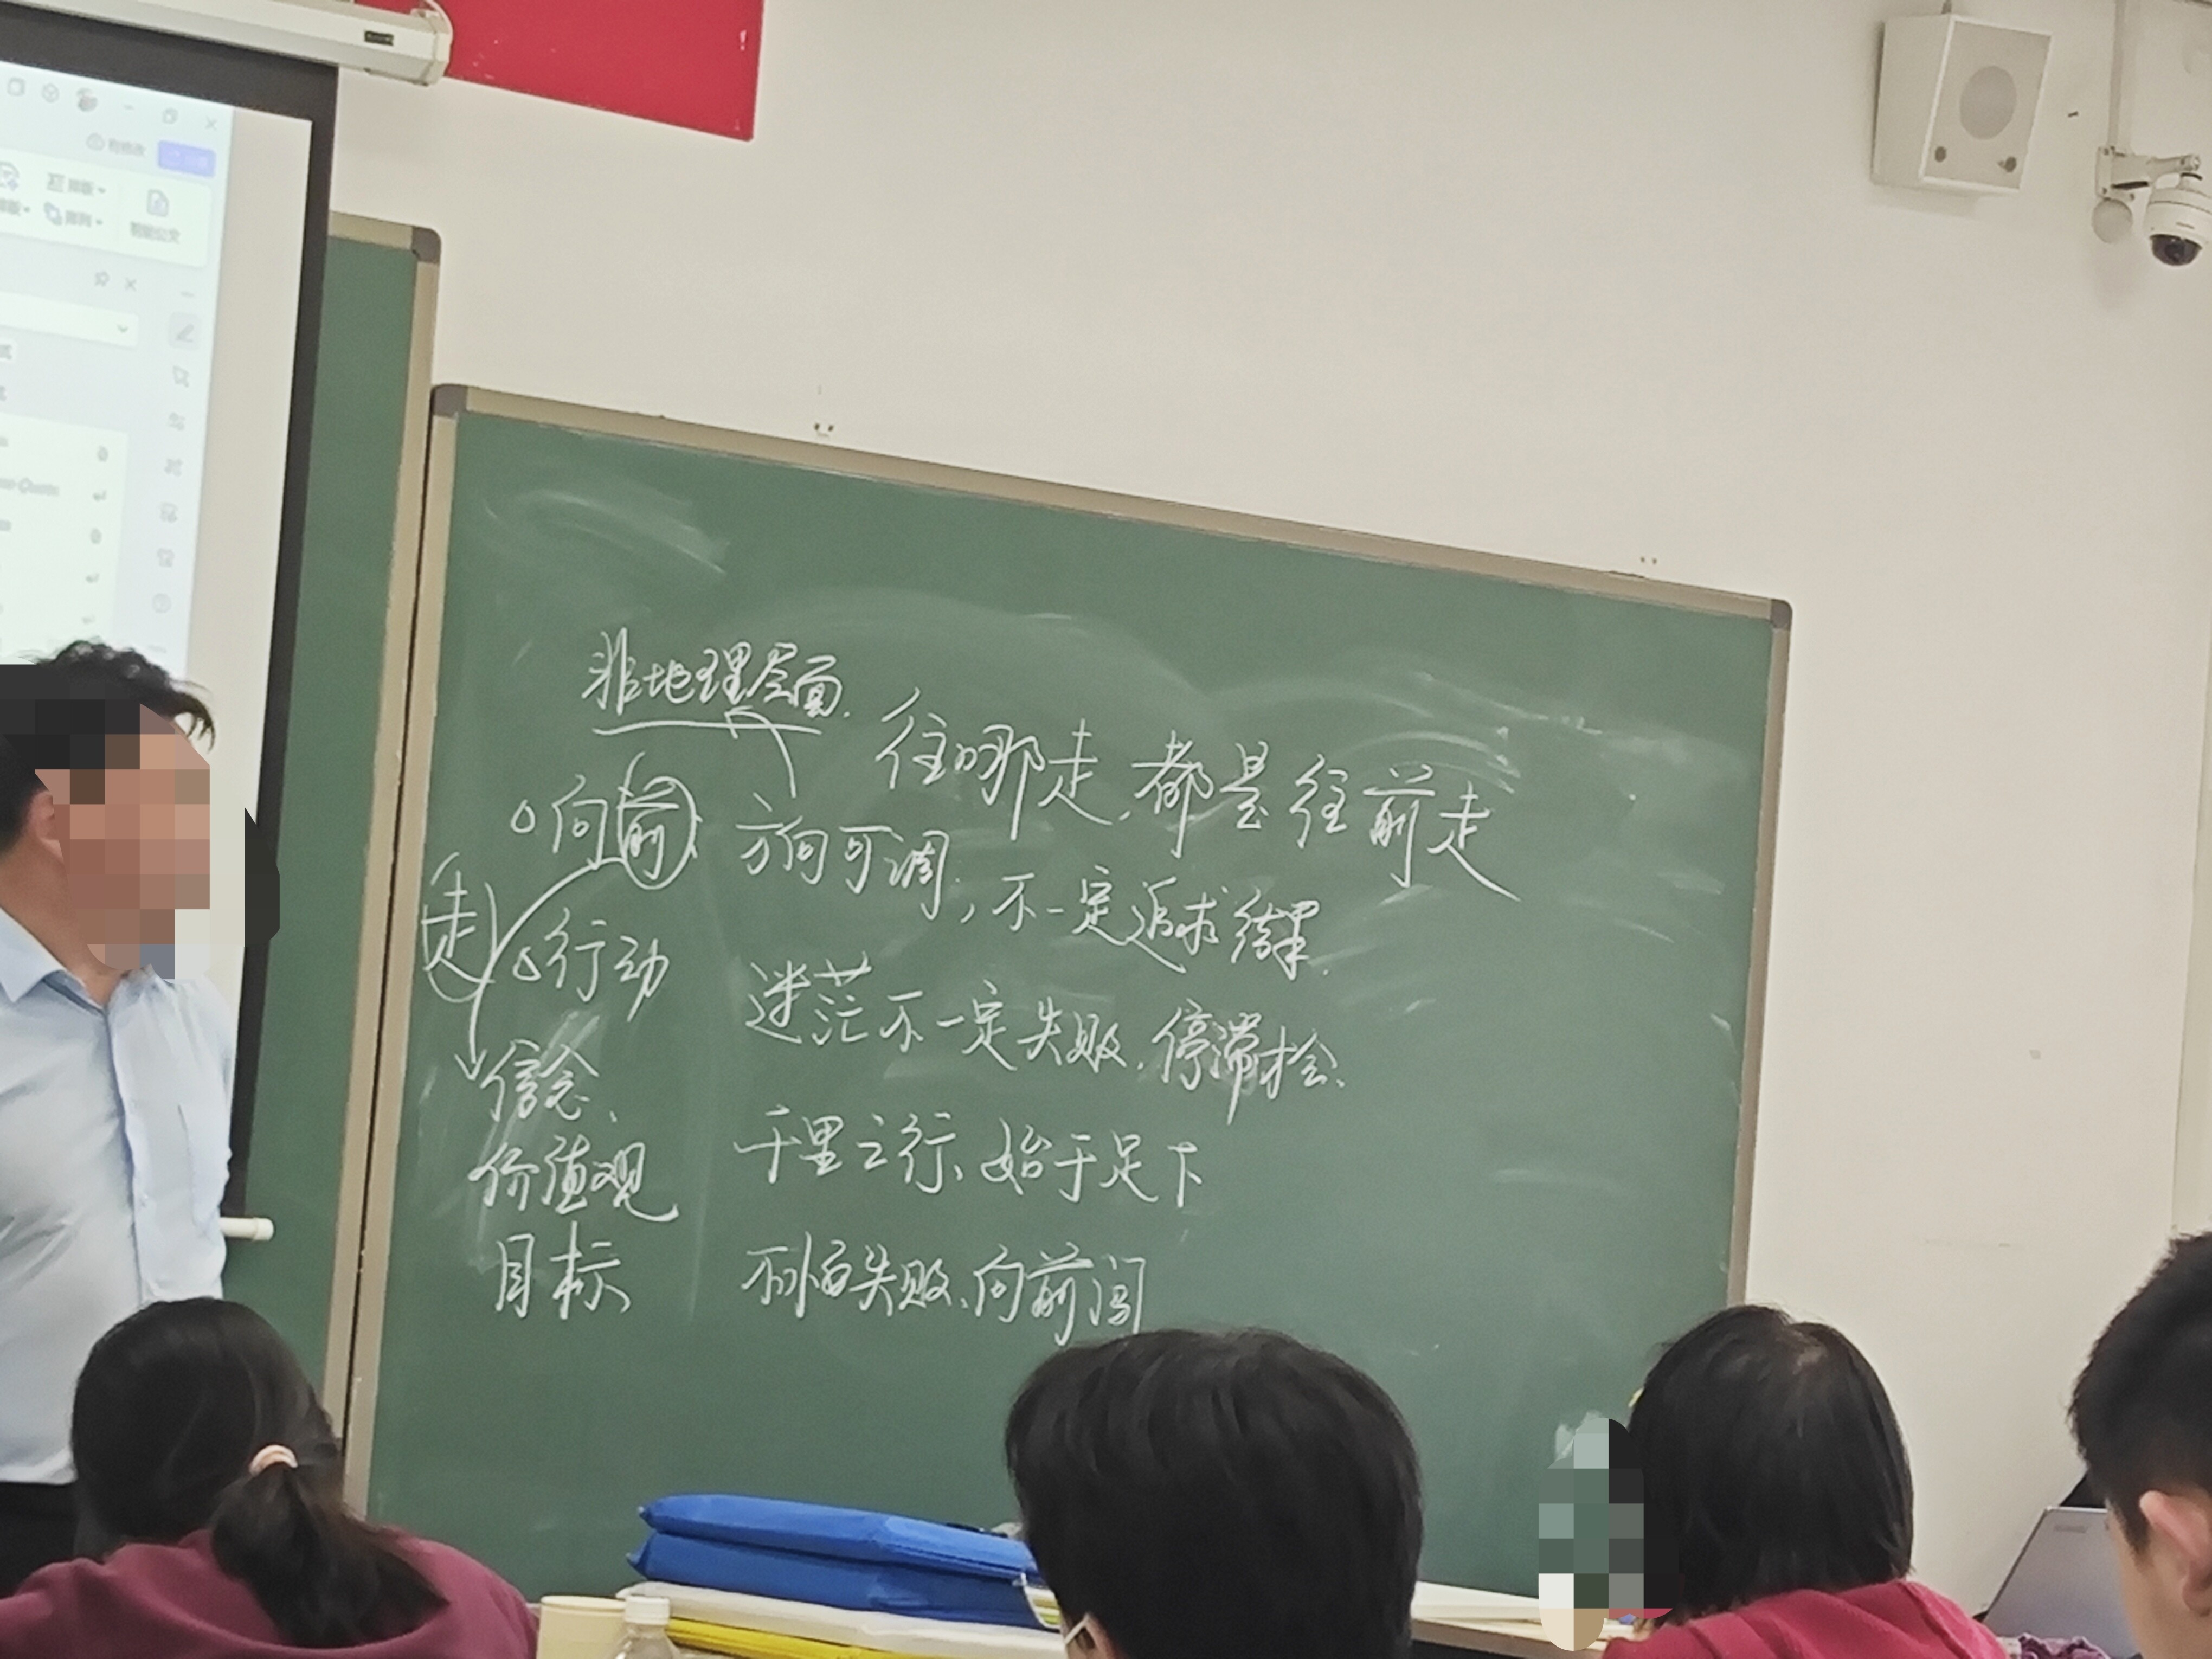 非地理层面.
往哪走,都是往前走
向前: 方向可调.,不一定追求结果.
走
行动
迷茫不一定失败,停滞才会.
信念、
价值观
千里之行、始于足下
目标
失败、向前闯
排版
排列